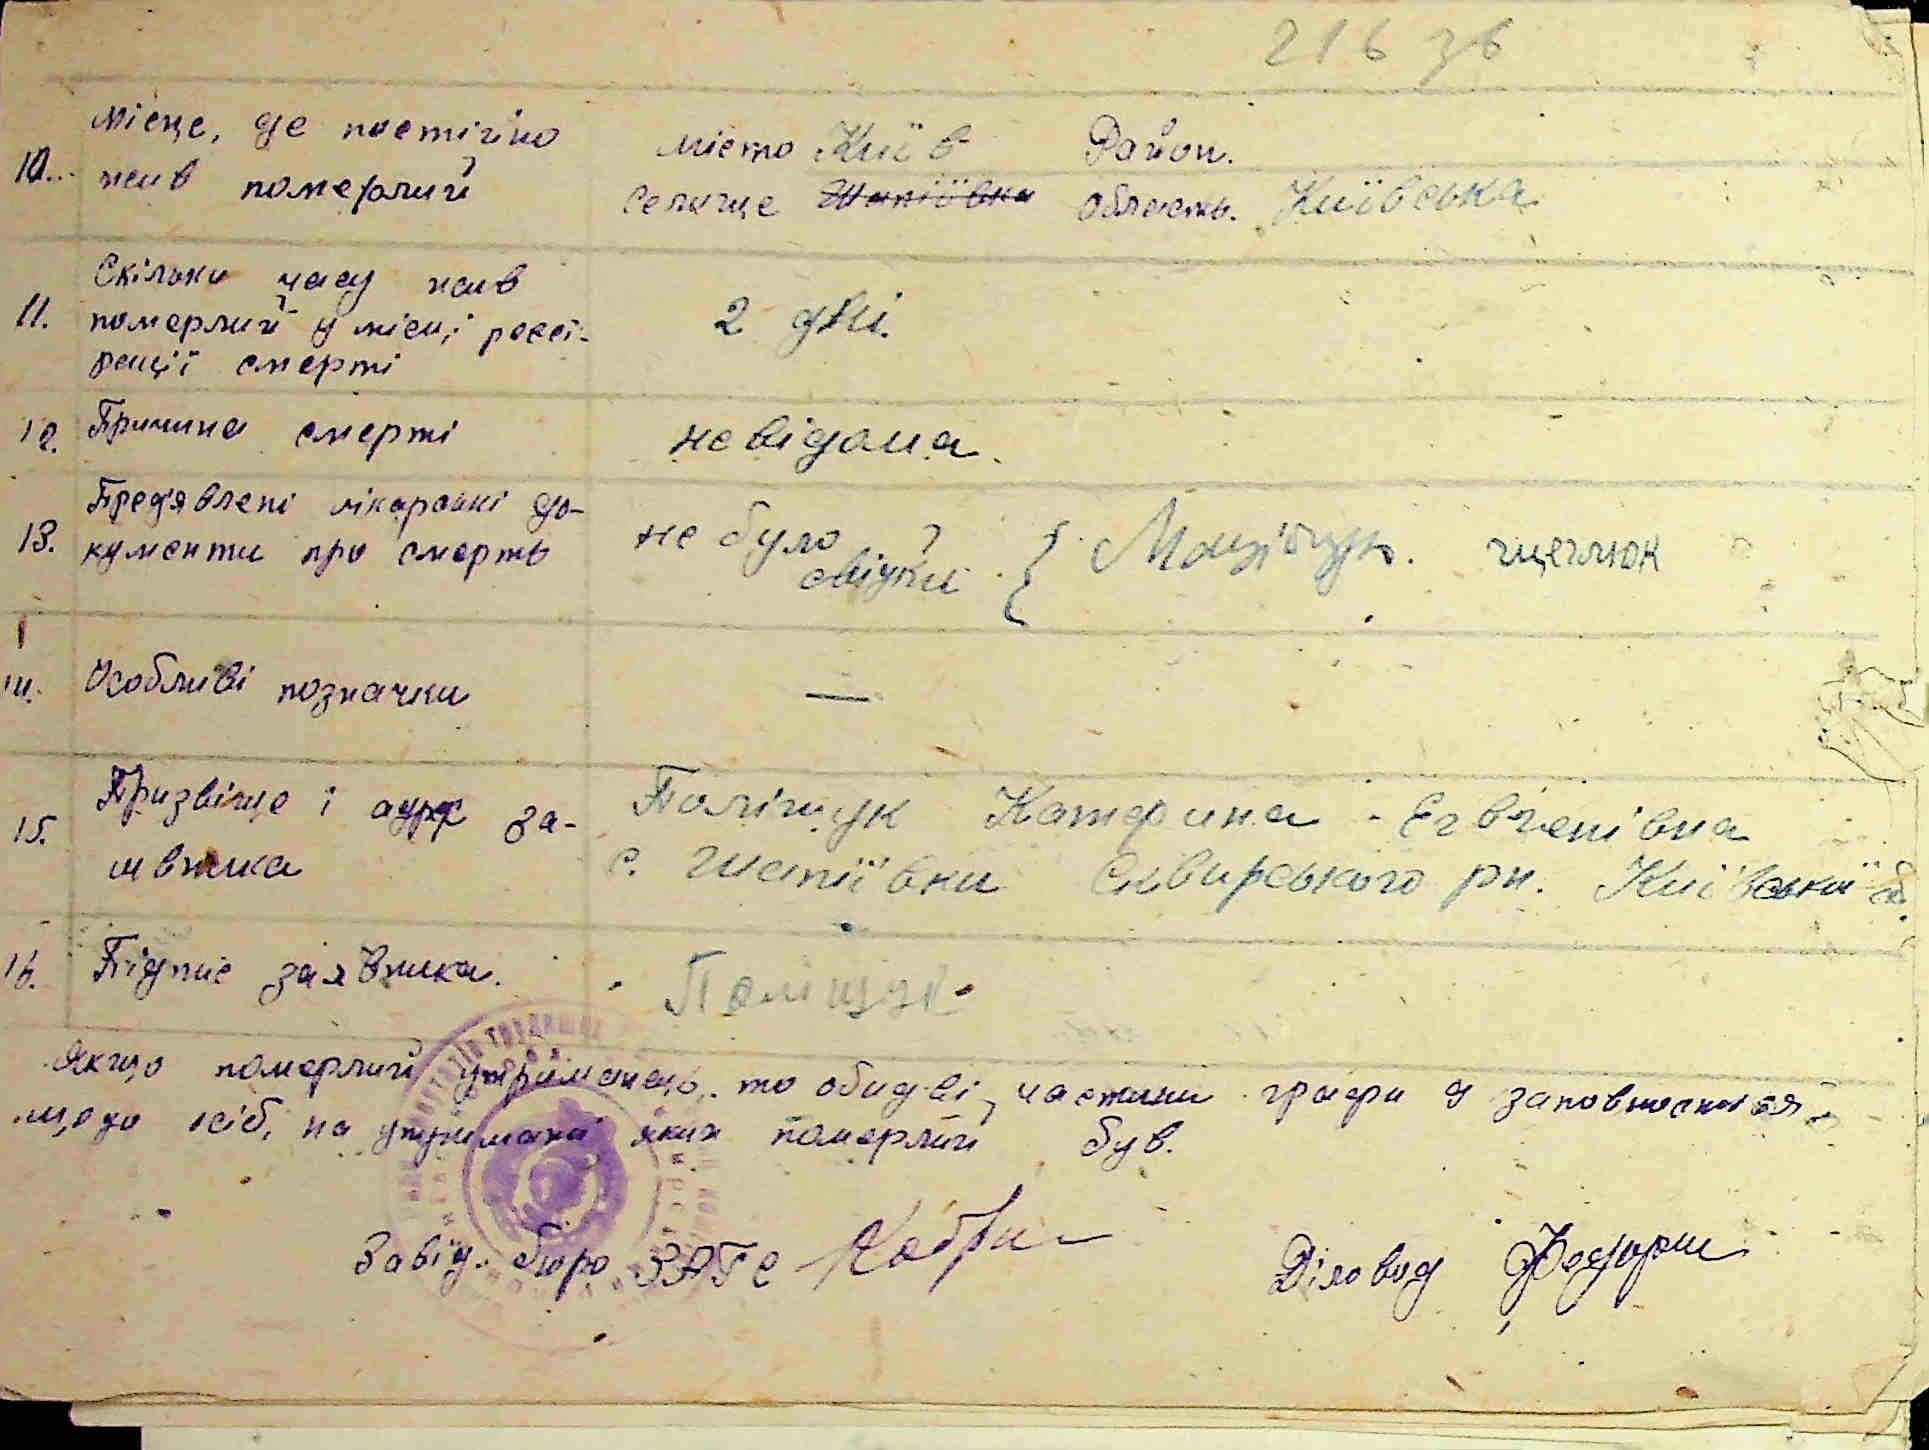 216 зв
Місце, де постійно
10. жив померлий
місто Київ Район.
селище область. Київська
Скільки часу жив
11. померлий у місці реєст-
рації смерті
2 дні.
12. Причина смерті невідома.
Пред'явлені лікарські до-
13. кументи про смерть
не було
свідки
14. Особливі позначки —
15. Прізвище і адрес за-
явника
Поліщук Катерина Євгенівна
с. Сквирського рн. Київської об.
16. Підпис заявника. Поліщук
Якщо померлий утриманець, то обидві частини графи 9 заповнюються
щодо осіб, на утриманні яких померлий був.
Завід. бюро ЗАГС
Діловод